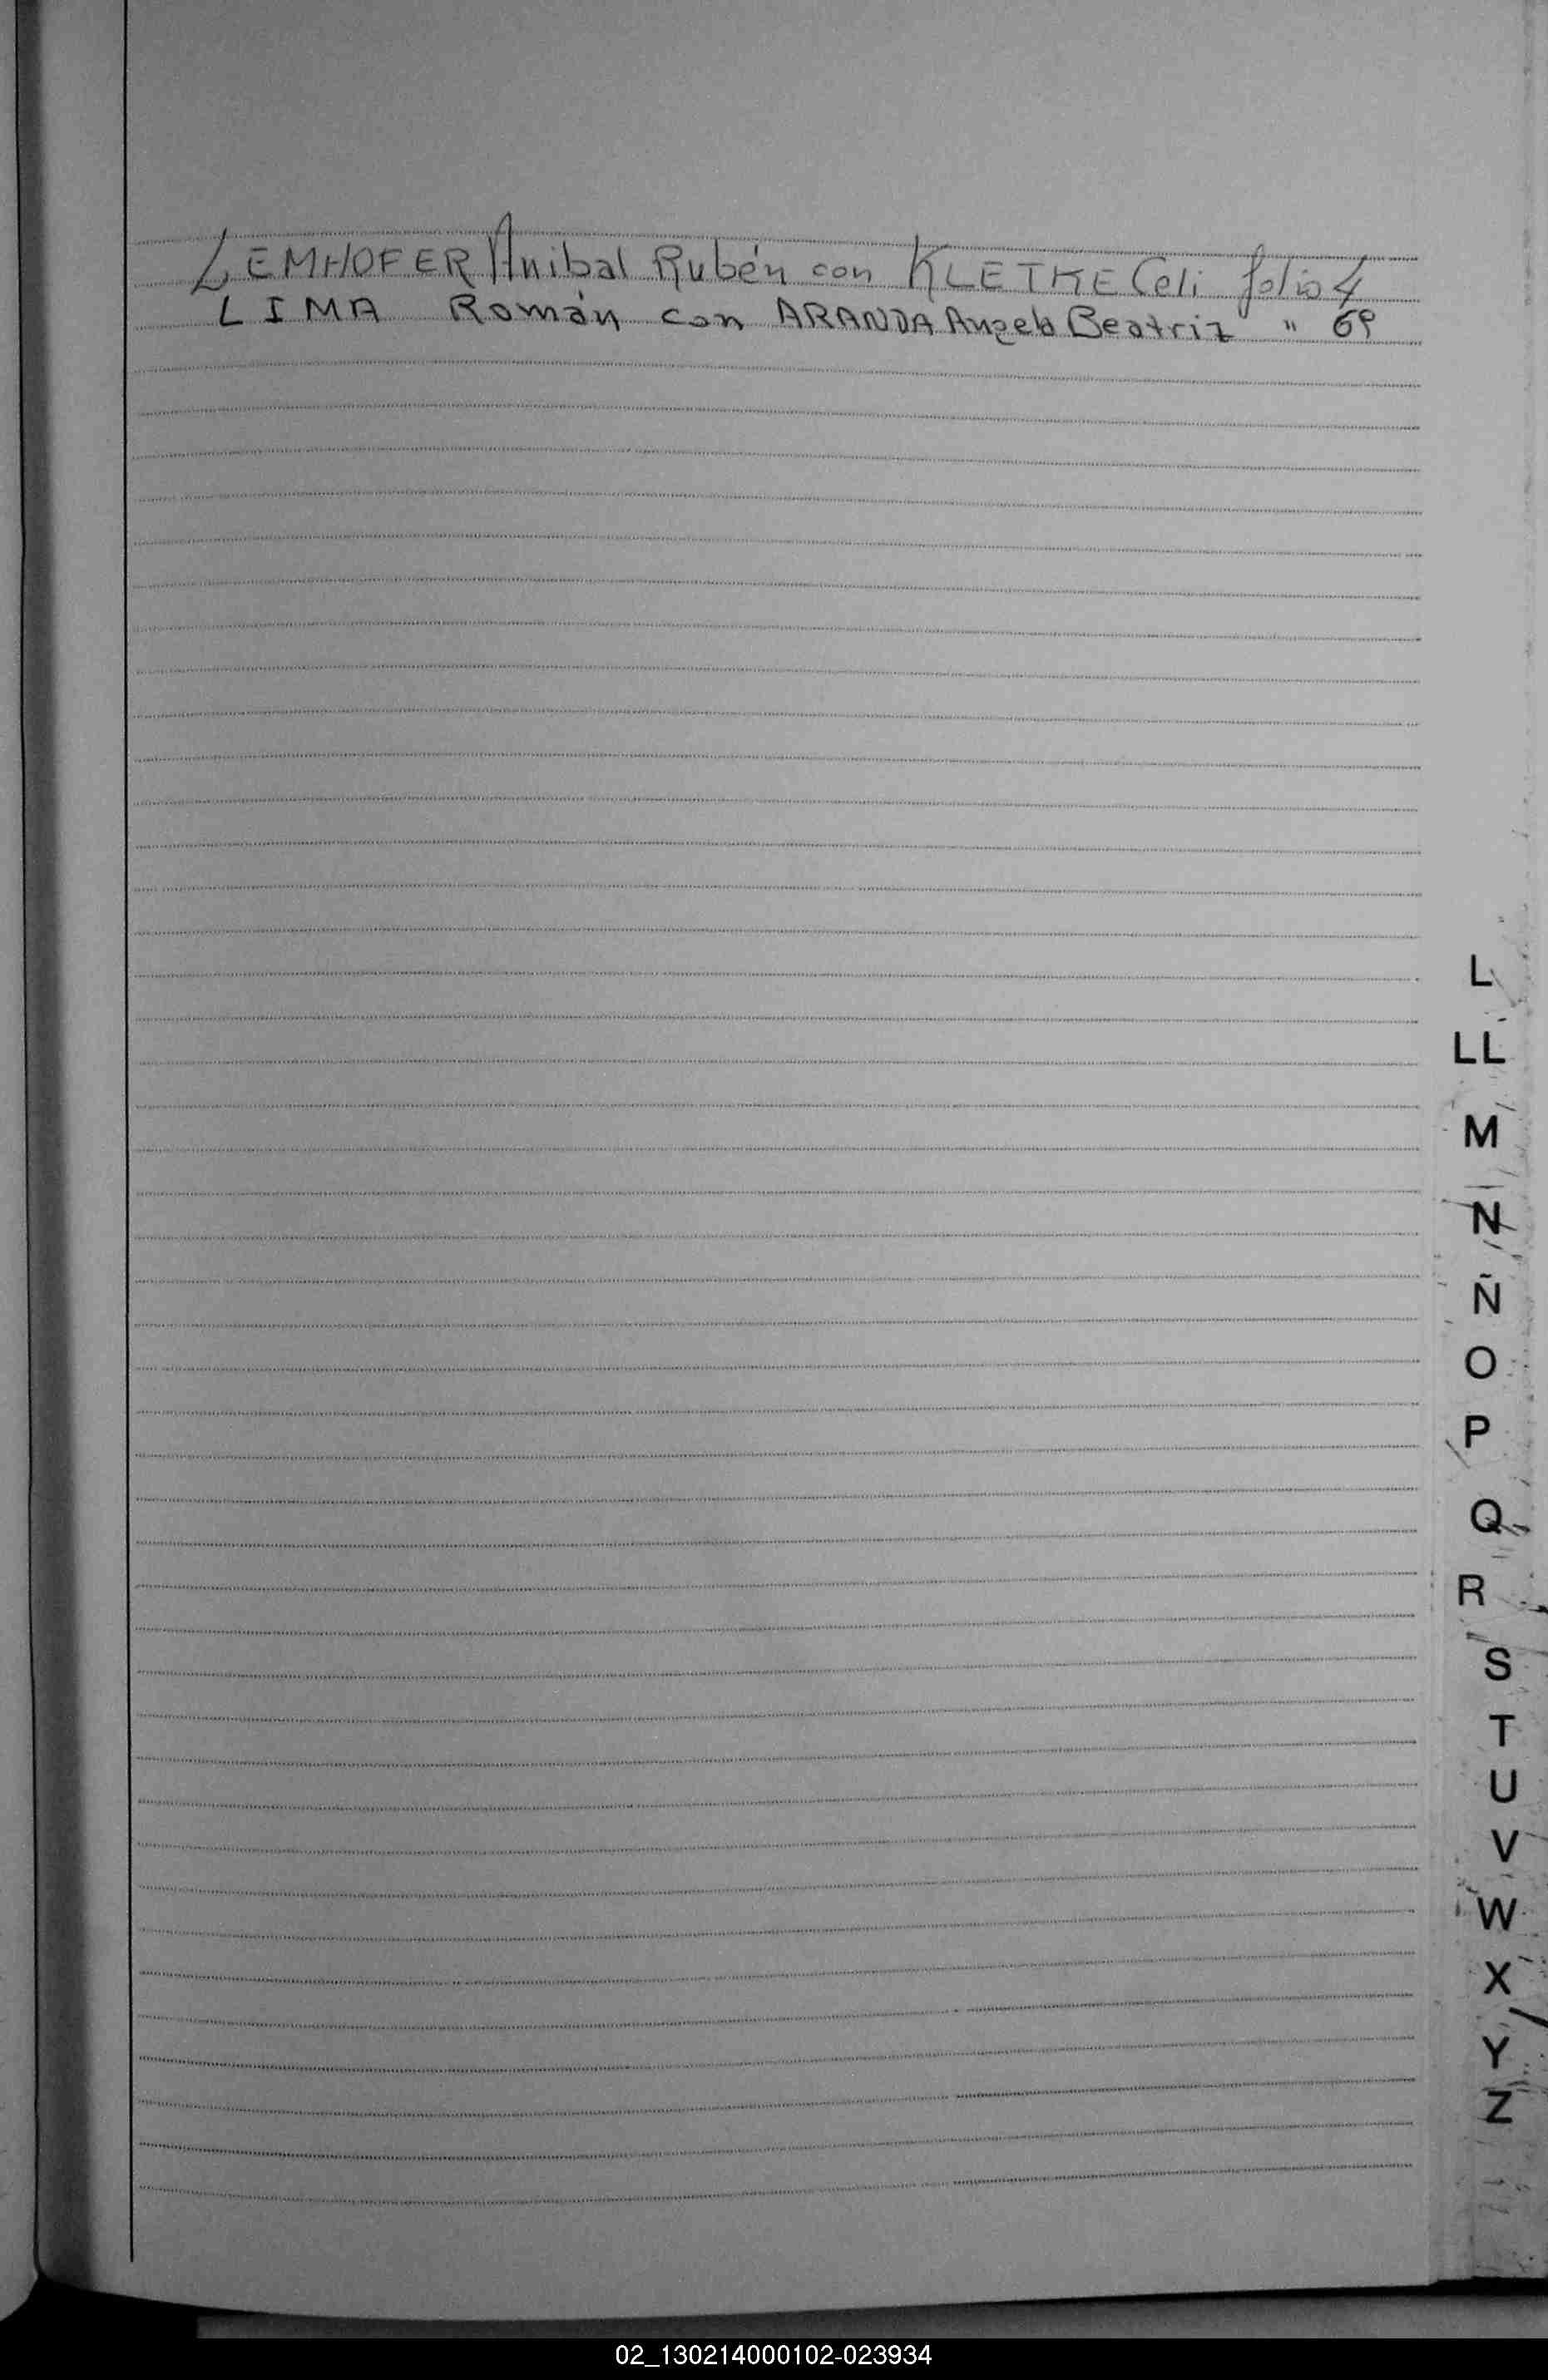 LEMHOFER Anibal Rubén con KLETKE Celi folio 4
LIMA Román con ARANDA Angela Beatriz " 69
L
LL
M
N
Ñ
O
P
Q
R
S
T
U
V
W
X
Y
Z
02_130214000102-023934